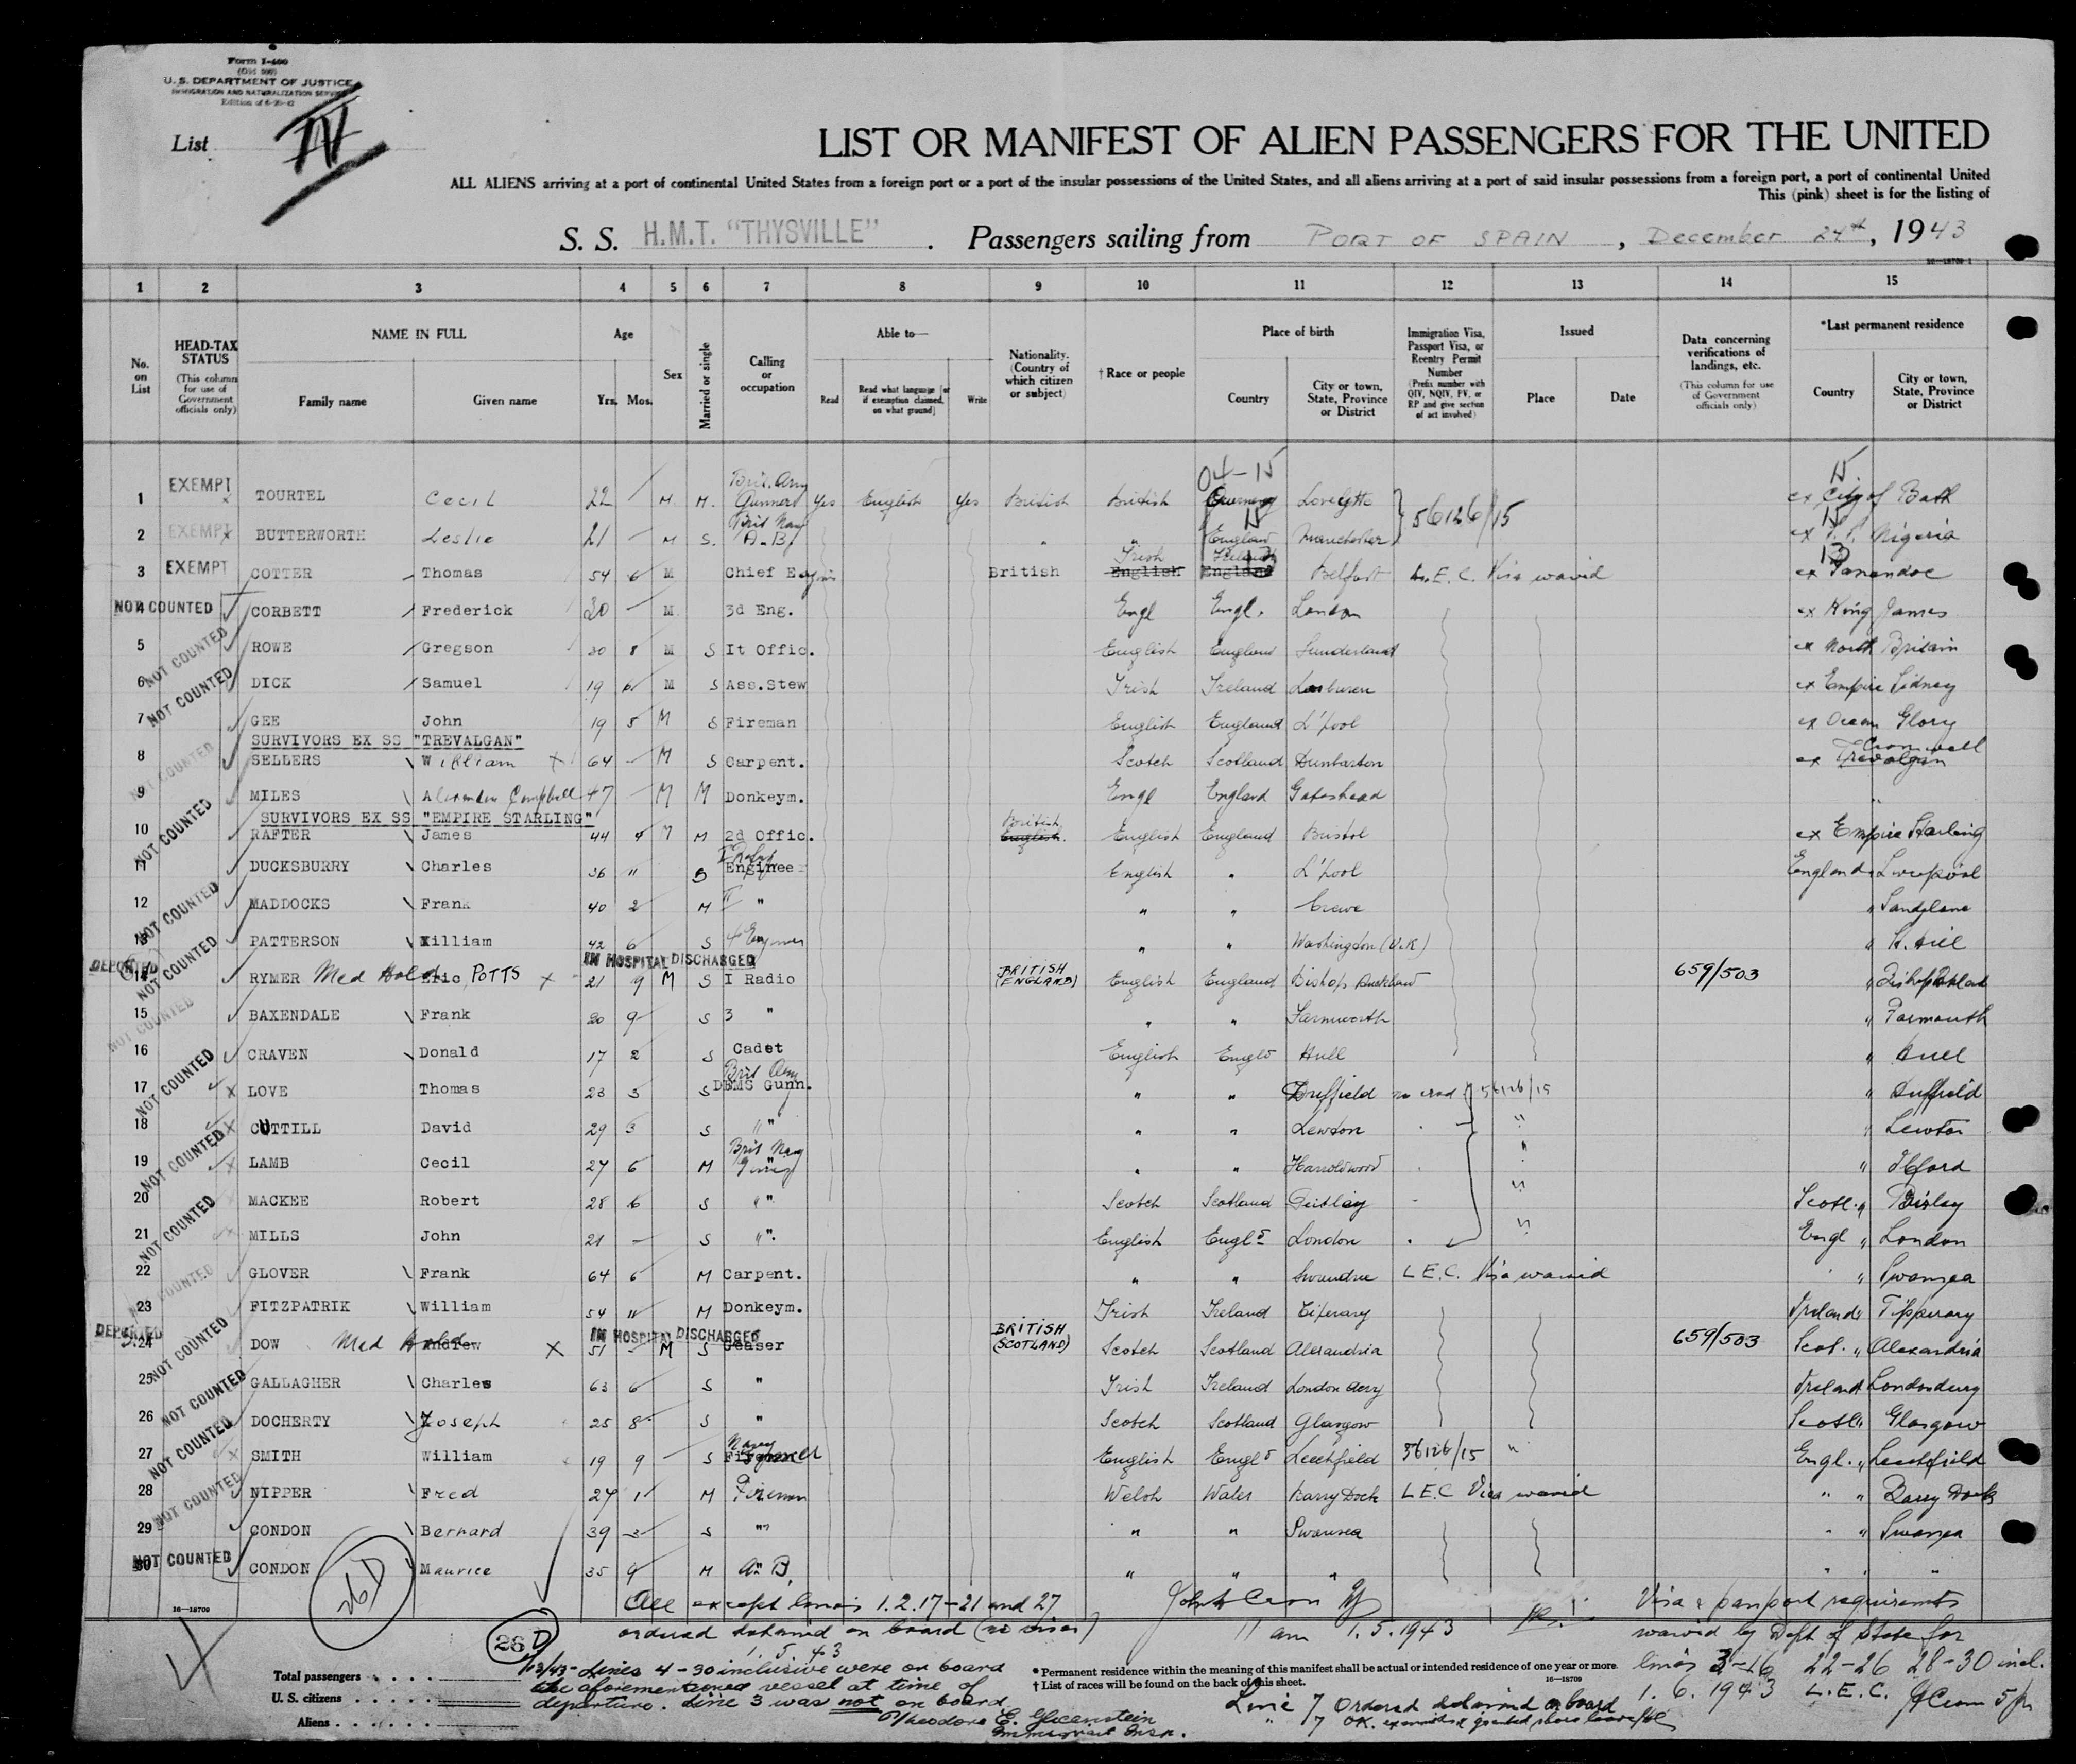 Form I-400
(Old 500)
U. S. DEPARTMENT OF JUSTICE
IMMIGRATION AND NATURALIZATION SERVICE
Edition of 6-20-42
List IV
LIST OR MANIFEST OF ALIEN PASSENGERS FOR THE UNITED
ALL ALIENS arriving at a port of continental United States from a foreign port or a port of the insular possessions of the United States, and all aliens arriving at a port of said insular possessions from a foreign port, a port of continental United
This (pink) sheet is for the listing of
S. S. H.M.T. "THYSVILLE" . Passengers sailing from PORT OF SPAIN , December 24th, 1943
1 2 3 4 5 6 7 8 9 10 11 12 13 14 15
No. on List
HEAD-TAX STATUS (This column for use of Government officials only)
NAME IN FULL Family name Given name
Age Yrs. Mos.
Sex
Married or single
Calling or occupation
Able to— Read Read what language [or if exemption claimed, on what ground] Write
Nationality. (Country of which citizen or subject)
†Race or people
Place of birth Country City or town, State, Province or District
Immigration Visa, Passport Visa, or Reentry Permit Number (Prefix number with QIV, NQIV, PV, or RP and give section of act involved)
Issued Place Date
Data concerning verifications of landings, etc. (This column for use of Government officials only)
*Last permanent residence Country City or town, State, Province or District
1 EXEMPT TOURTEL Cecil 22 M. M. Brit. Army Gunner Yes English Yes British British 04-15 56126/15 ex City of Bath
2 EXEMPT BUTTERWORTH Leslie 21 - M S. Brit Navy A.B. " " England Manchester ex Nigeria
3 EXEMPT COTTER Thomas 54 6 M Chief Engin British Irish English Ireland England Belfast L.E.C. Visa waived ex
4 NOT COUNTED CORBETT Frederick 20 - M. 3d Eng. Engl Engl. London ex King James
5 NOT COUNTED ROWE Gregson 30 8 M S It Offic. English England Sunderland ex North Britain
6 NOT COUNTED DICK Samuel 19 6 M S Ass.Stew Irish Ireland ex Empire Sidney
7 GEE John 19 5 M S Fireman English England L'pool ex Ocean Glory
SURVIVORS EX SS "TREVALGAN"
8 NOT COUNTED SELLERS William X 64 - M S Carpent. Scotch Scotland Dunbarton ex Trevalgan Cornwall
9 MILES Alexander Campbell 47 - M M Donkeym. Engl England Gateshead "
SURVIVORS EX SS "EMPIRE STARLING"
10 NOT COUNTED RAFTER James 44 4 M M 2d Offic. British English English England Bristol ex Empire Starling
11 DUCKSBURRY Charles 36 11 S Enginee English " L'pool England Liverpool
12 NOT COUNTED MADDOCKS Frank 40 2 M " " " Crewe " Sandylane
13 NOT COUNTED PATTERSON William 42 6 S 4 Engineer " " Washington (U.K) "
IN HOSPITAL DISCHARGED
14 DEPORTED RYMER Med Hold Eric POTTS X 21 9 M S I Radio BRITISH (ENGLAND) English England Bishop 659/503 "
15 NOT COUNTED BAXENDALE Frank 20 9 S 3 " " " Farnworth "
16 CRAVEN Donald 17 2 S Cadet English Engld Hull " Hull
17 NOT COUNTED X LOVE Thomas 23 5 S Brit Army DEMS Gunn. " " 56126/15 "
18 X CUTTILL David 29 3 S " " " "
19 NOT COUNTED LAMB Cecil 27 6 M Brit Navy " " Haroldwood " Ilford
20 MACKEE Robert 28 6 S " Scotch Scotland Scotl. "
21 NOT COUNTED MILLS John 21 - S " English Engld London Engl " London
22 NOT COUNTED GLOVER Frank 64 6 M Carpent. " " L.E.C. Visa waived " Swansea
23 FITZPATRIK William 54 11 M Donkeym. Irish Ireland Ireland " Tipperary
IN HOSPITAL DISCHARGED
24 DEPORTED NOT COUNTED DOW Med Hold Andrew X 51 - M S Geaser BRITISH (SCOTLAND) Scotch Scotland Alexandria 659/503 Scot. " Alexandria
25 NOT COUNTED GALLAGHER Charles 63 6 S " Irish Ireland London derry Ireland Londonderry
26 DOCHERTY Joseph 25 8 S " Scotch Scotland Glasgow Scotl " Glasgow
27 NOT COUNTED SMITH William 19 9 - S Navy English Engld 56126/15 " Engl. "
28 NOT COUNTED NIPPER Fred 27 1 M Fireman Welsh Wales Barry Dock L.E.C Visa waived " " Barry Dock
29 CONDON Bernard 39 3 S " " " Swansea " " Swansea
30 NOT COUNTED CONDON Maurice 35 9 M A. B. " " " " " "
16—18709
26D
All except lines 1.2.17-21 and 27
ordered detained on board (no visas)
11 am 1.5.1943
Visa & passport requirements
waived by Dept of State for
lines 3-16 22-26 28-30 incl.
1. 6. 1943 L.E.C.
26 D
1. 5. 43
Lines 4-30 inclusive were on board
the aforementioned vessel at time of
departure. Line 3 was not on board
Theodore E.
Immigrant Insp.
Total passengers . . . . .
U. S. citizens . . . . .
Aliens . . . . . .
* Permanent residence within the meaning of this manifest shall be actual or intended residence of one year or more.
† List of races will be found on the back of this sheet.
16—18709
Line 7 Ordered detained on board
" 7 OK. examined & granted shore leave